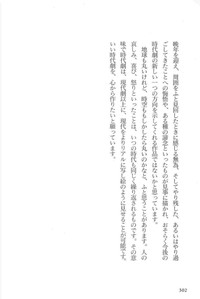 晩年を迎え、周囲をふと見回したときに感じる無為、そしてやり残した、あるいはやり過
ごしてきたことへの悔恨や、ある種の諦念といったものが見事に描かれ、おそらく今後の
時代劇の新しい一つの方向を示してくれる作品ではないかと思っています。
　地球も丸いけれど、時空ももしかしたら丸いのかなと、ふと思うことがあります。人の
哀しみ、喜び、怒りといったことは、いつの時代も同じく繰り返されるものです。その意
味で時代劇は、現代劇以上に、現代をよりリアルに写し絵のように見せることが可能です。
いい時代劇を、心から作りたいと願っています。
382